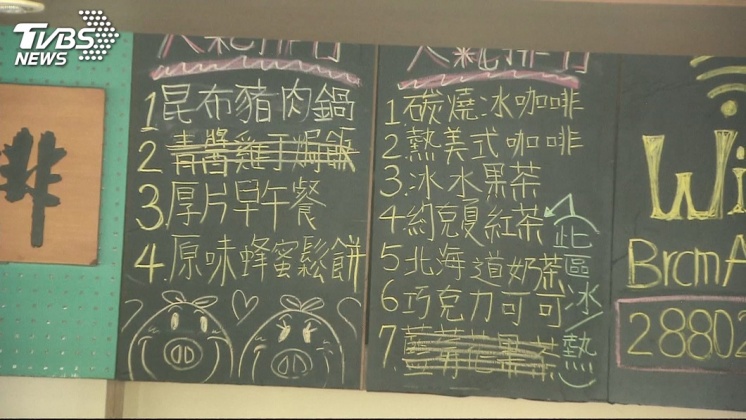 TVBS
NEWS
啡
人氣排行
1 昆布豬肉鍋
2 青醬雞丁焗飯
3 厚片早午餐
4. 原味蜂蜜鬆餅
人氣排行
1 碳燒冰咖啡
2 熱美式咖啡
3. 冰水果茶
4 約克夏紅茶
5 北海道奶茶
6 巧克力可可
7. 藍莓花果茶
此區冰/熱
Wi
BrcmA
28802